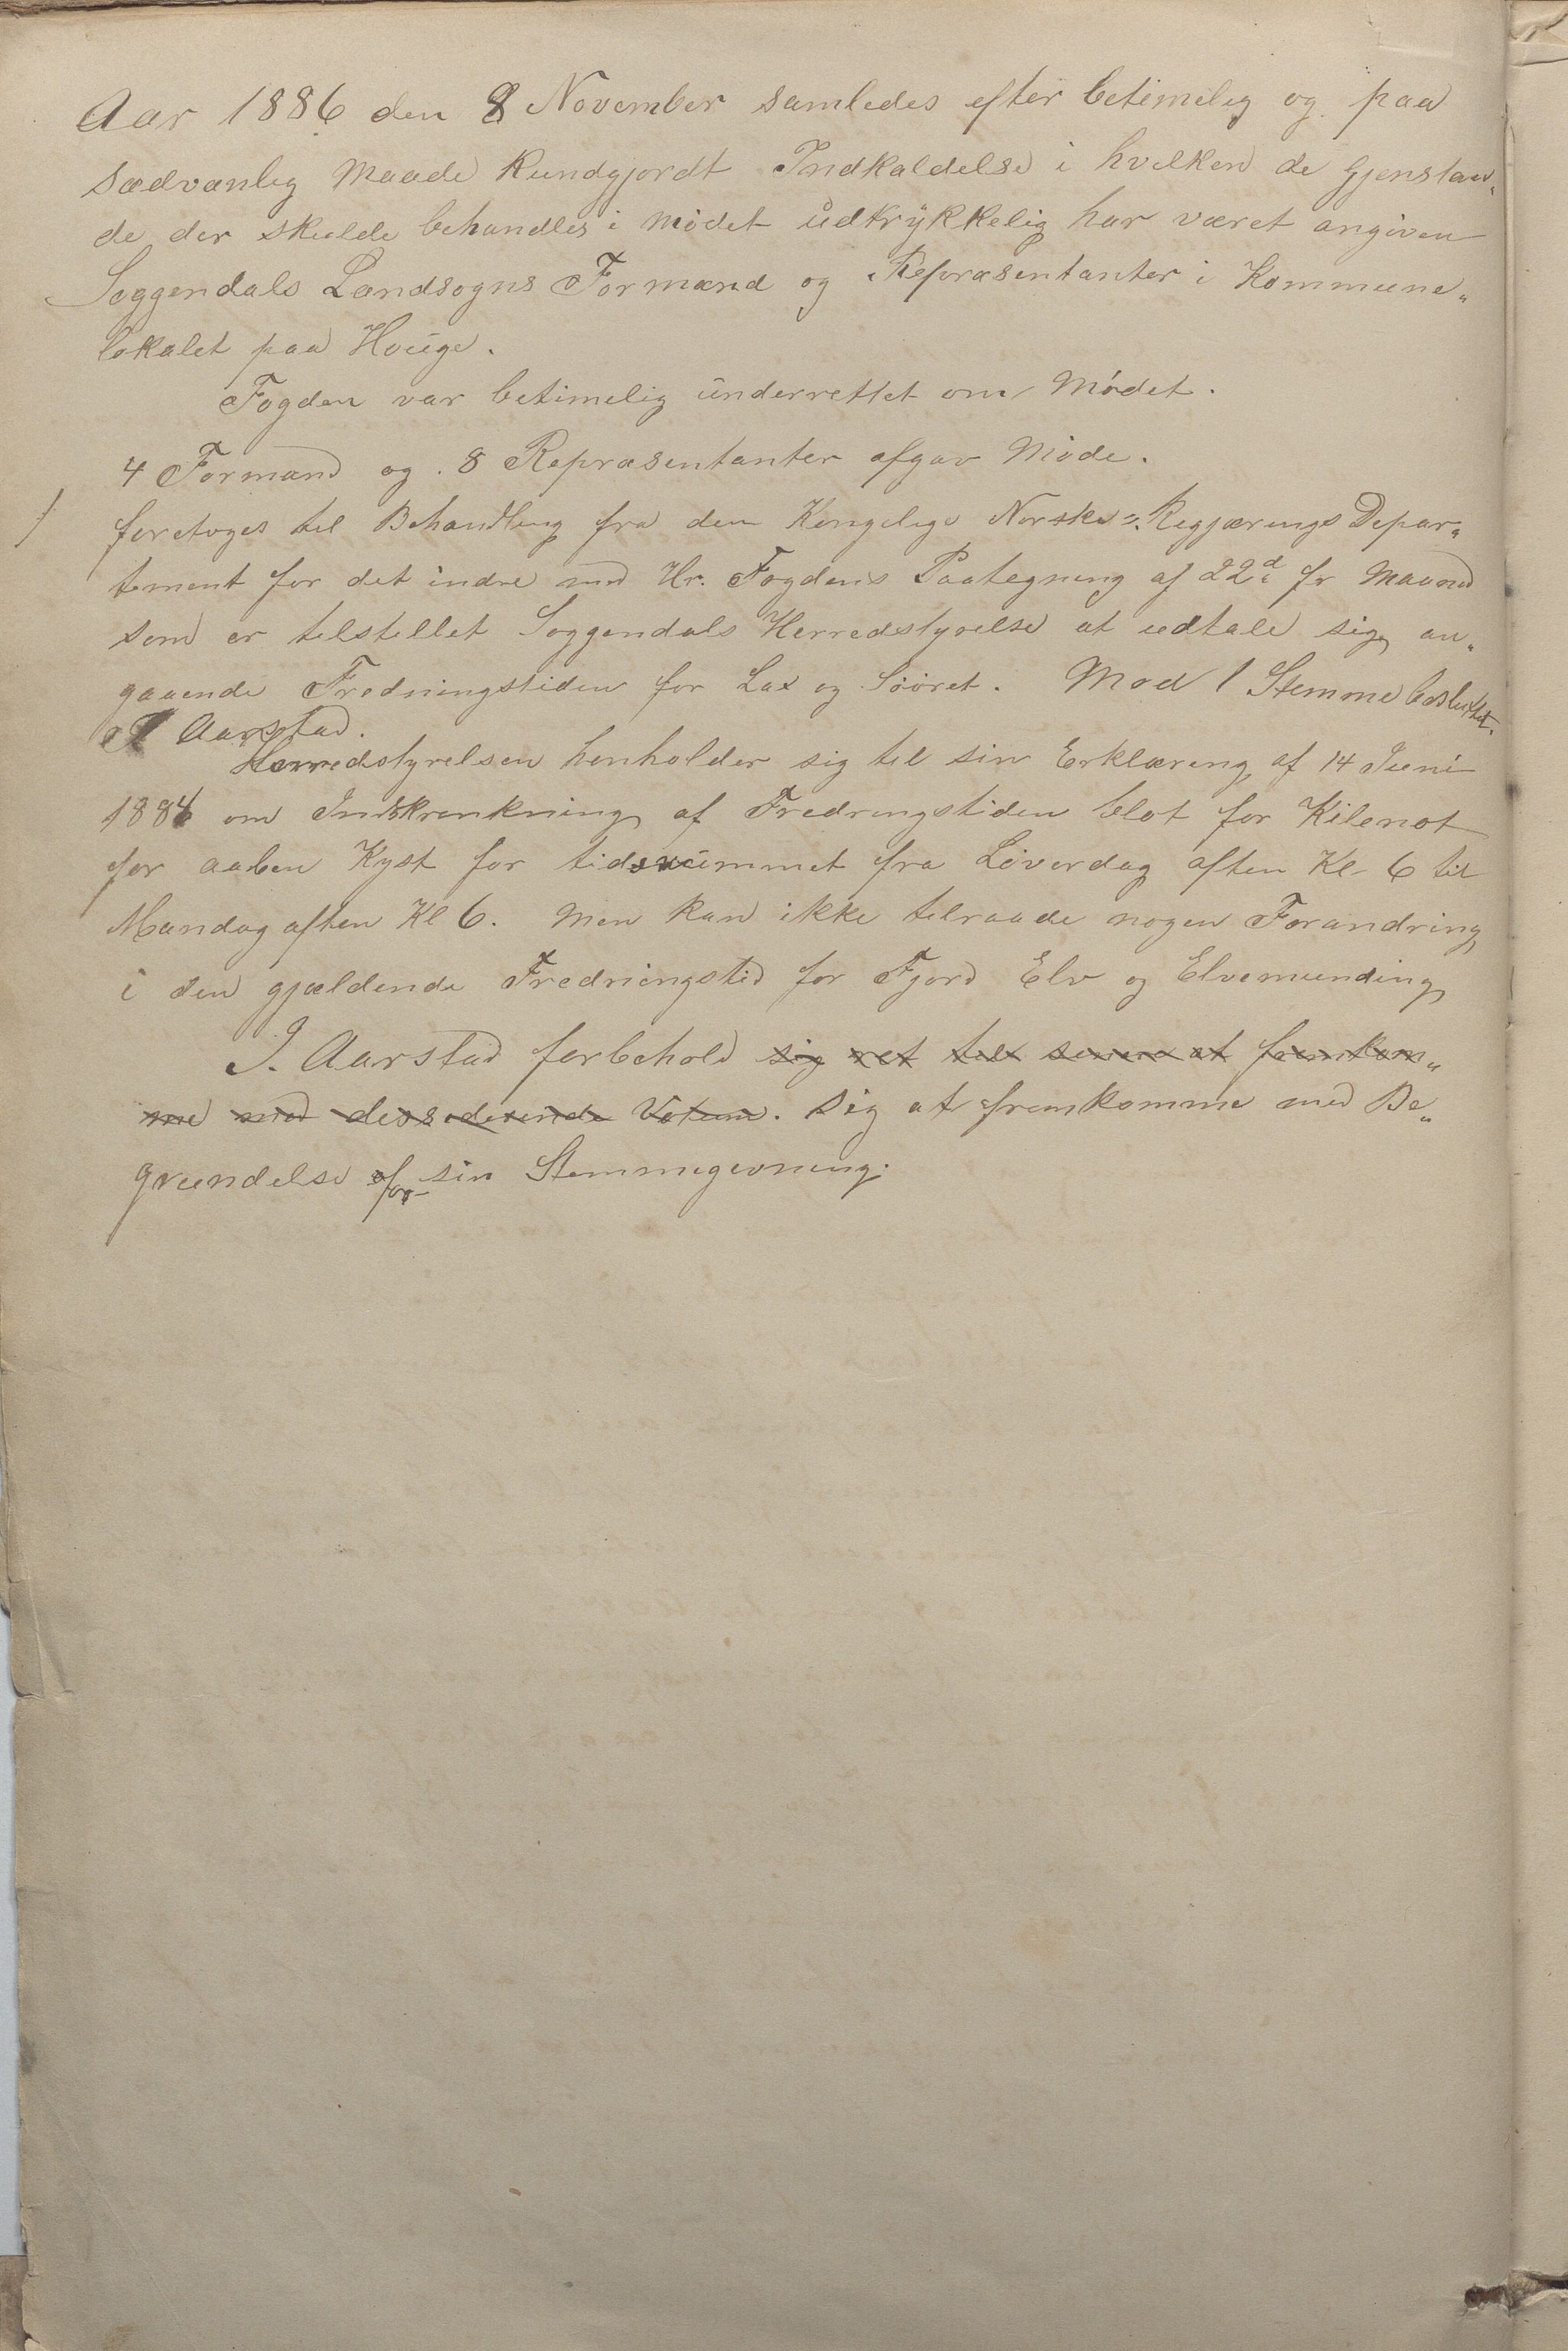 Aar 1886 den 8 November samledes efter betimelig og paa
sædvanlig Maade Kundgjordt Indkaldelse i hvilken de Gjenstan„
de der skulde behandles i Mödet udtrykkelig har været angiven
Soggendals Landsogns Formænd og Repræsentanter i Kommune„
lokalet paa Houge.
Fogden var betimelig underrettet om Mödet.
4 Formænd og 8 Repræsentanter afgav Möde.
foretoges til Behandling fra den Kongelige Norske Regjærings Depar„
tement for det indre med Hr. Fogdens Paategning af 22d fr Maaned
som er tilstillet Soggendals Herredstyrelse at udtale sig an„
gaaende Fredningstiden for Lax og Söörret. Mod 1 Stemme besluttet.
J Aarstad.
Herredstyrelsen henholder sig til sin Erklæring af 14 Juni
1884 om Indskrænkning af Fredningstiden blot for Kilenot
for aaben Kyst for tidsrummet fra Löverdag aften Kl 6 til
Mandag aften Kl 6. Men kan ikke tilraade nogen Forandring
i den gjældende Fredningstid for Fjord Elv og Elvemunding
J. Aarstad forbehold sig ret til senere at fremkom„
me med dessiderende Votum. sig at fremkomme med Be„
grundelse for sin Stemmegivning.